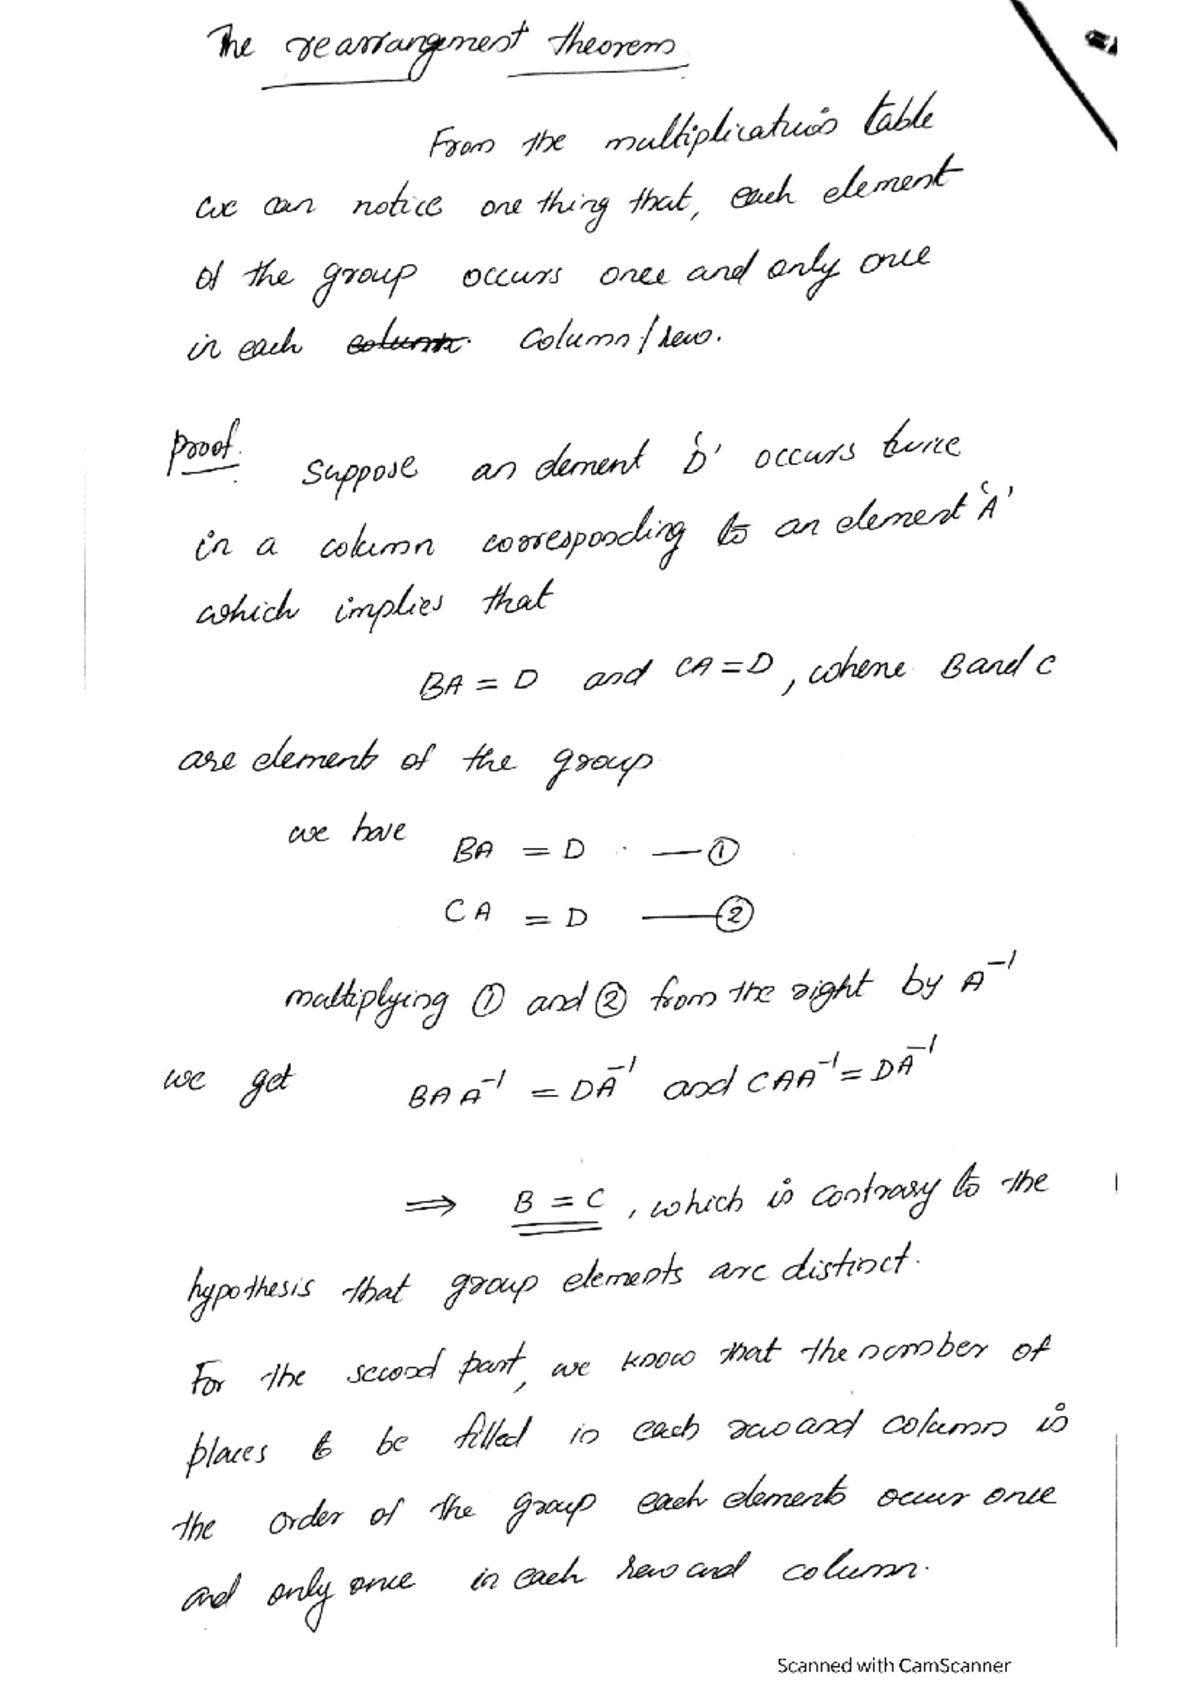 The rearrangement theorem
From the multiplication table
we can notice one thing that, each element
of the group occurs once and only once
in each column column/row.
Proof. Suppose an element 'D' occurs twice
in a column corresponding to an element 'A'
which implies that
BA = D and CA = D, where B and C
are elements of the group
we have BA = D —①
CA = D —②
multiplying ① and ② from the right by A⁻¹
we get BAA⁻¹ = DA⁻¹ and CAA⁻¹ = DA⁻¹
⟹ B = C, which is contrary to the
hypothesis that group elements are distinct.
For the second part, we know that the number of
places to be filled in each row and column is
the order of the group each elements occur once
and only once in each row and column.
Scanned with CamScanner